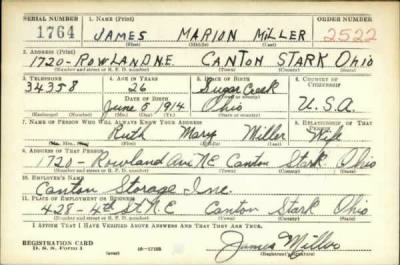 SERIAL NUMBER 1. NAME (Print) ORDER NUMBER
1764 JAMES MARION MILLER 2522
(First) (Middle) (Last)
2. ADDRESS (Print)
1720-ROWLAND N.E. CANTON STARK OHIO
(Number and street or R. F. D. number) (Town) (County) (State)
3. TELEPHONE 4. AGE IN YEARS 5. PLACE OF BIRTH 6. COUNTRY OF CITIZENSHIP
34358 26 Sugar Creek
DATE OF BIRTH
June 5 1914 Ohio U.S.A.
7. NAME OF PERSON WHO WILL ALWAYS KNOW YOUR ADDRESS 8. RELATIONSHIP OF THAT PERSON
Ruth Mary Miller Wife
9. ADDRESS OF THAT PERSON
1720-Rowland Ave NE Canton Stark Ohio
(Number and street or R. F. D. number) (Town) (County) (State)
10. EMPLOYER'S NAME
Canton Storage Inc.
11. PLACE OF EMPLOYMENT OR BUSINESS
428-4th St N.E Canton Stark Ohio
(Number and street or R. F. D. number) (Town) (County) (State)
I AFFIRM THAT I HAVE VERIFIED ABOVE ANSWERS AND THAT THEY ARE TRUE.
REGISTRATION CARD
D. S. S. Form 1
James Miller
(Registrant's signature)